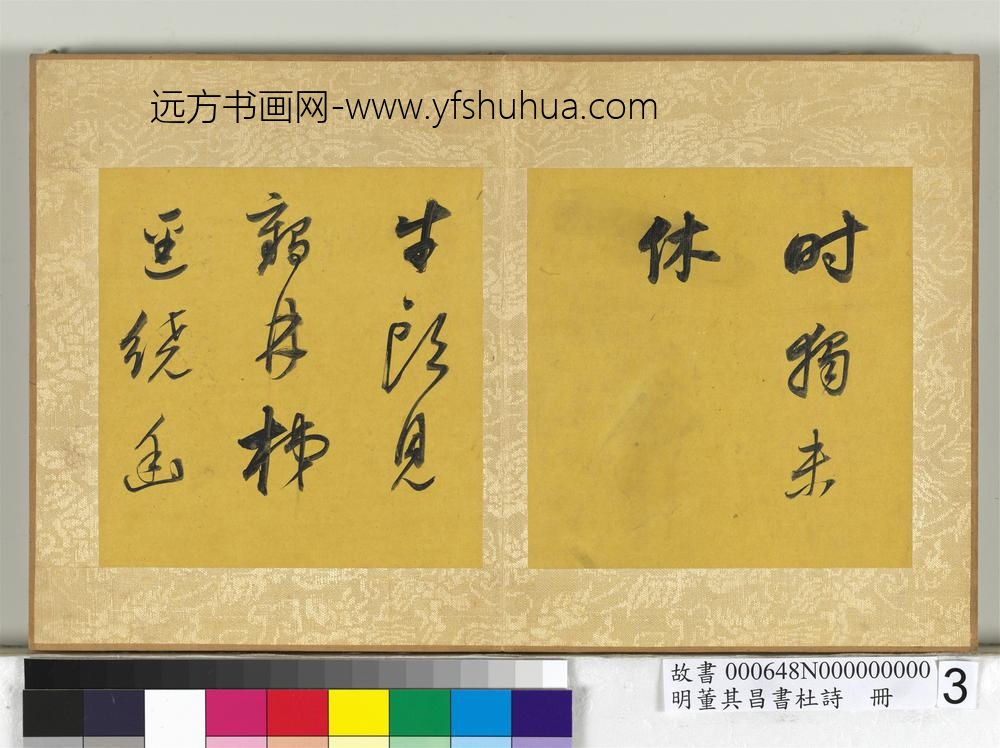 远方书画网-www.yfshuhua.com
时獨未
休
牛頭見
鶴林梯
逕繞幽
故書 000648N000000000
明董其昌書杜詩 冊
3